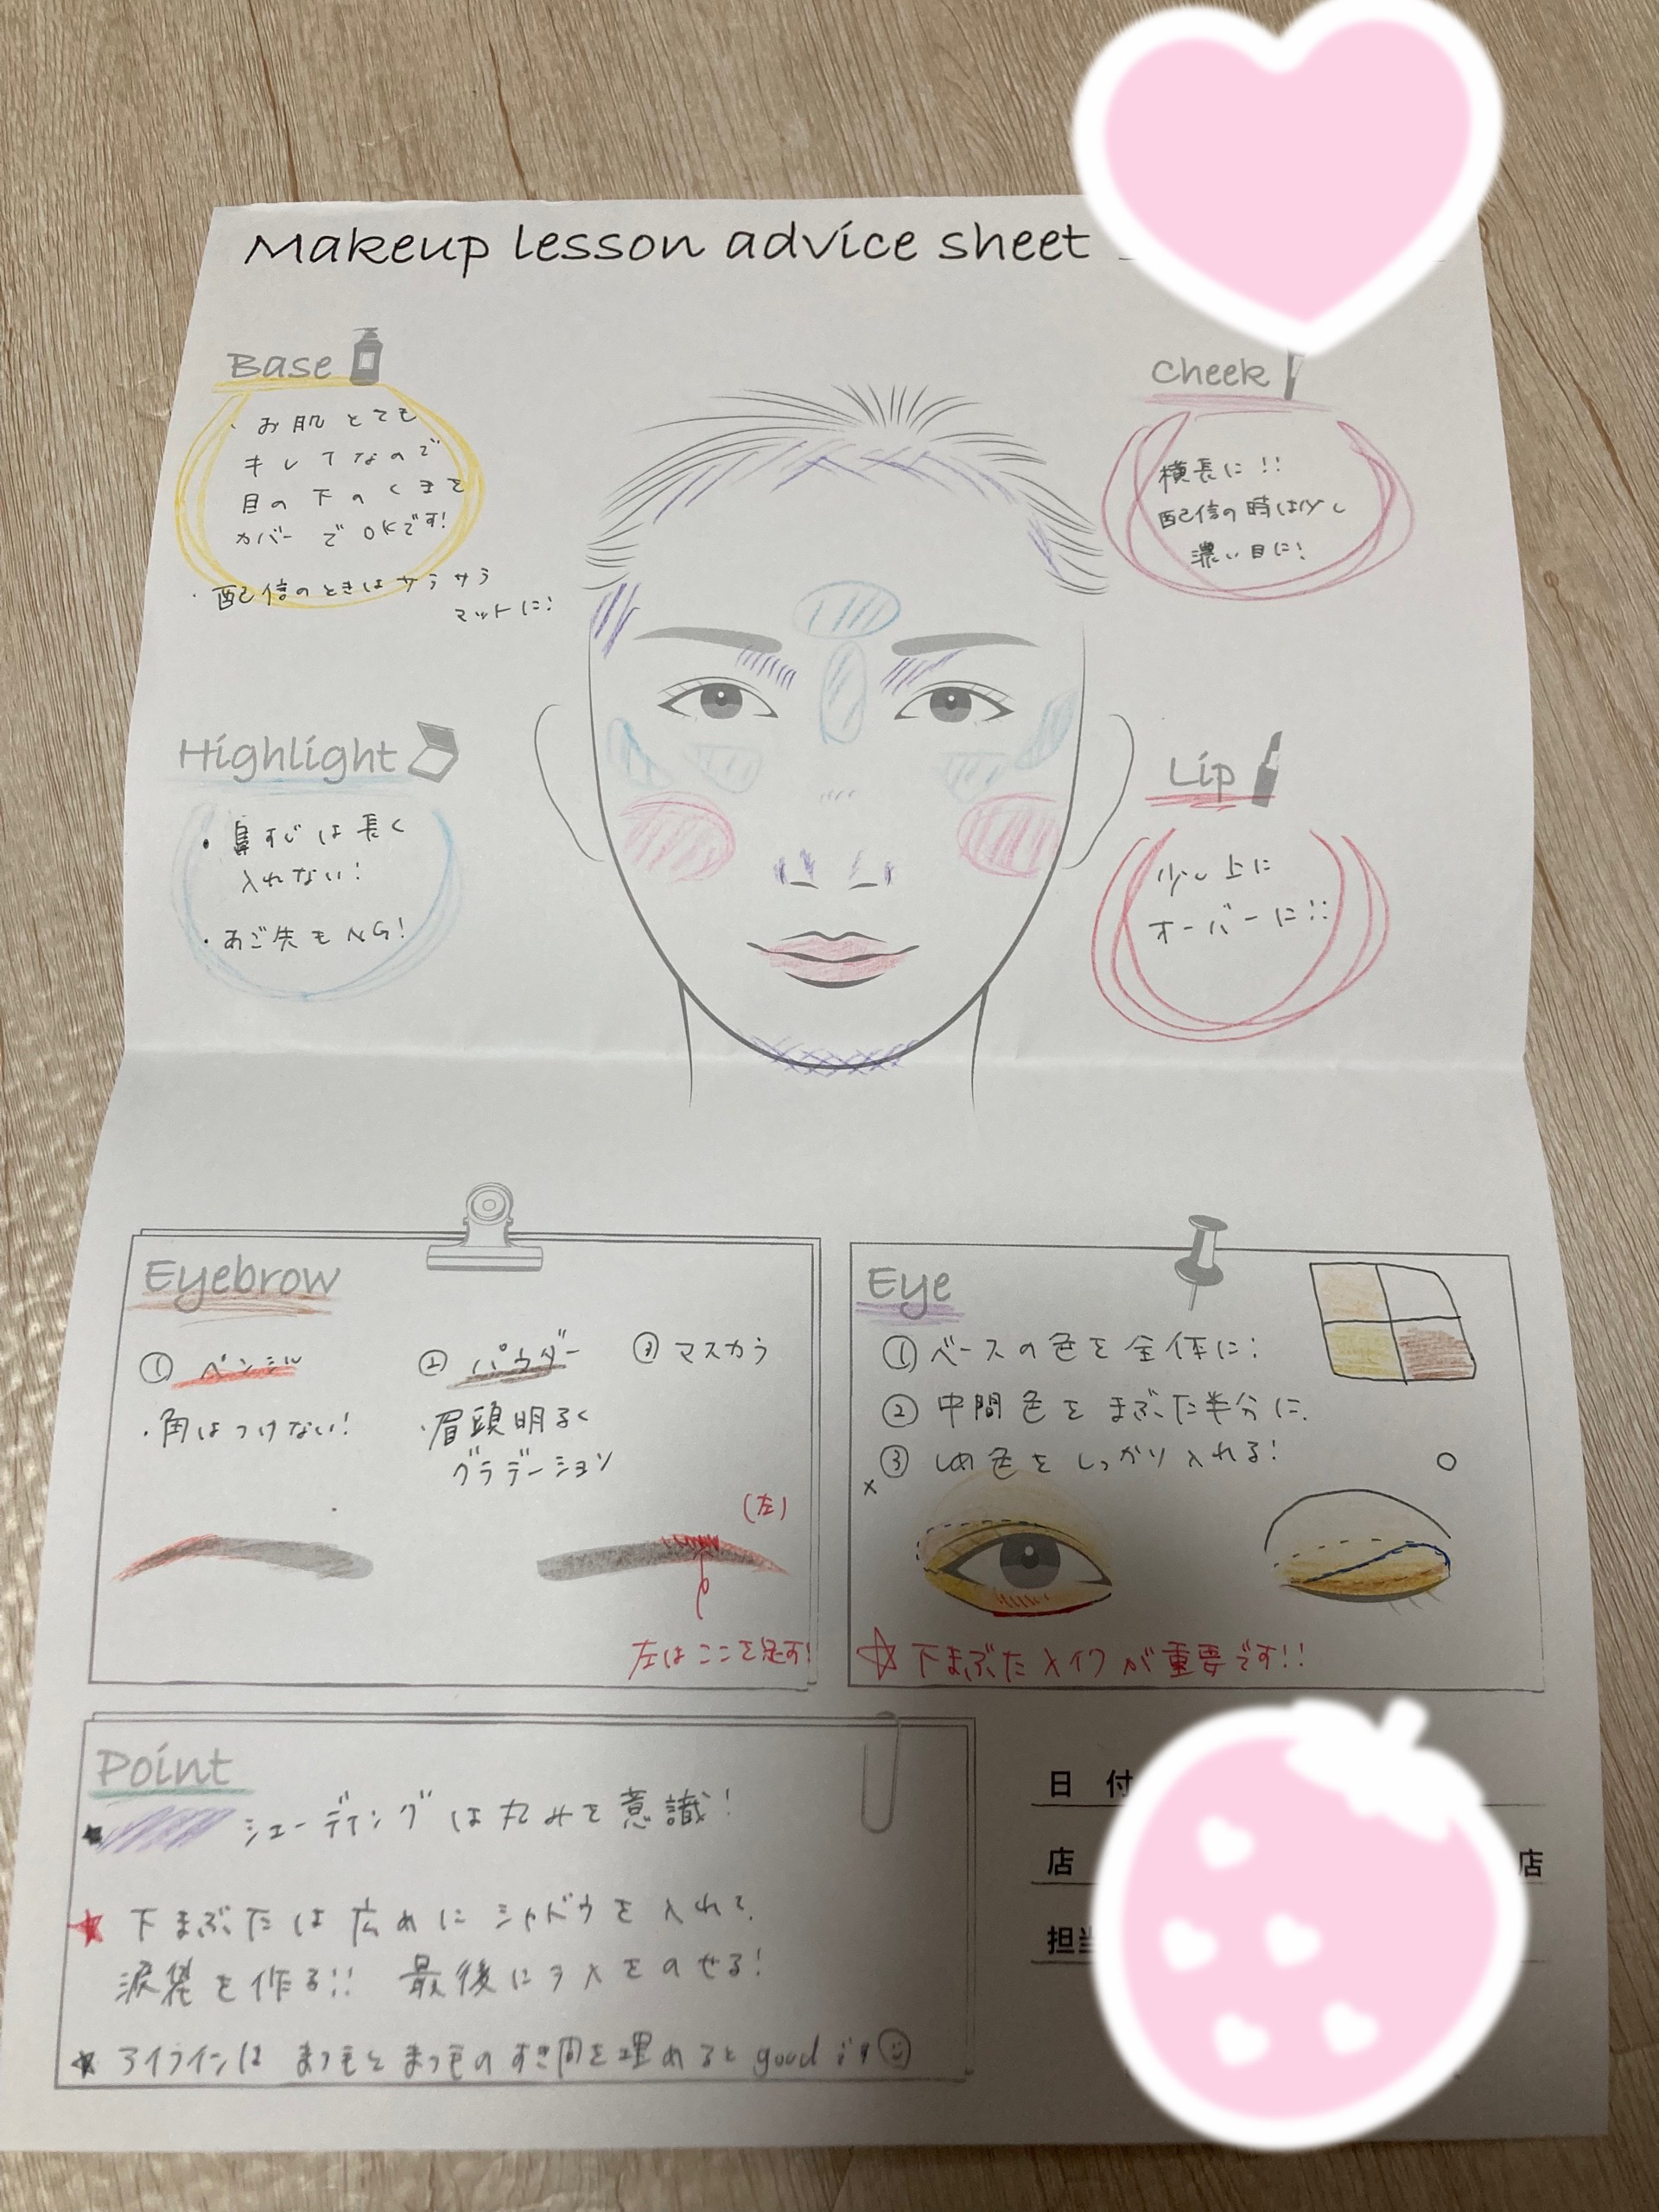 Makeup lesson advice sheet
Base
・お肌とても
キレイなので
目の下のくまを
カバーでOKです!
・配信のときはサラサラ
マットに!
Cheek
横長に!!
配信の時は少し
濃い目に!
Highlight
・鼻すじは長く
入れない!
・あご先もNG!
Lip
少し上に
オーバーに!!
Eyebrow
① ペンシル
・角はつけない!
② パウダー
・眉頭明るく
グラデーション
③ マスカラ
(左)
左はここを足す!
Eye
① ベースの色を全体に!
② 中間色をまぶた半分に.
③ しめ色をしっかり入れる!
x
○
☆下まぶたメイクが重要です!!
Point
★ シェーディングは丸みを意識!
★ 下まぶたは広めにシャドウを入れて.
涙袋を作る!! 最後にラメをのせる!
★ アイラインはまつ毛とまつ毛のすき間を埋めるとgoodです☺
日 付
店
店
担当